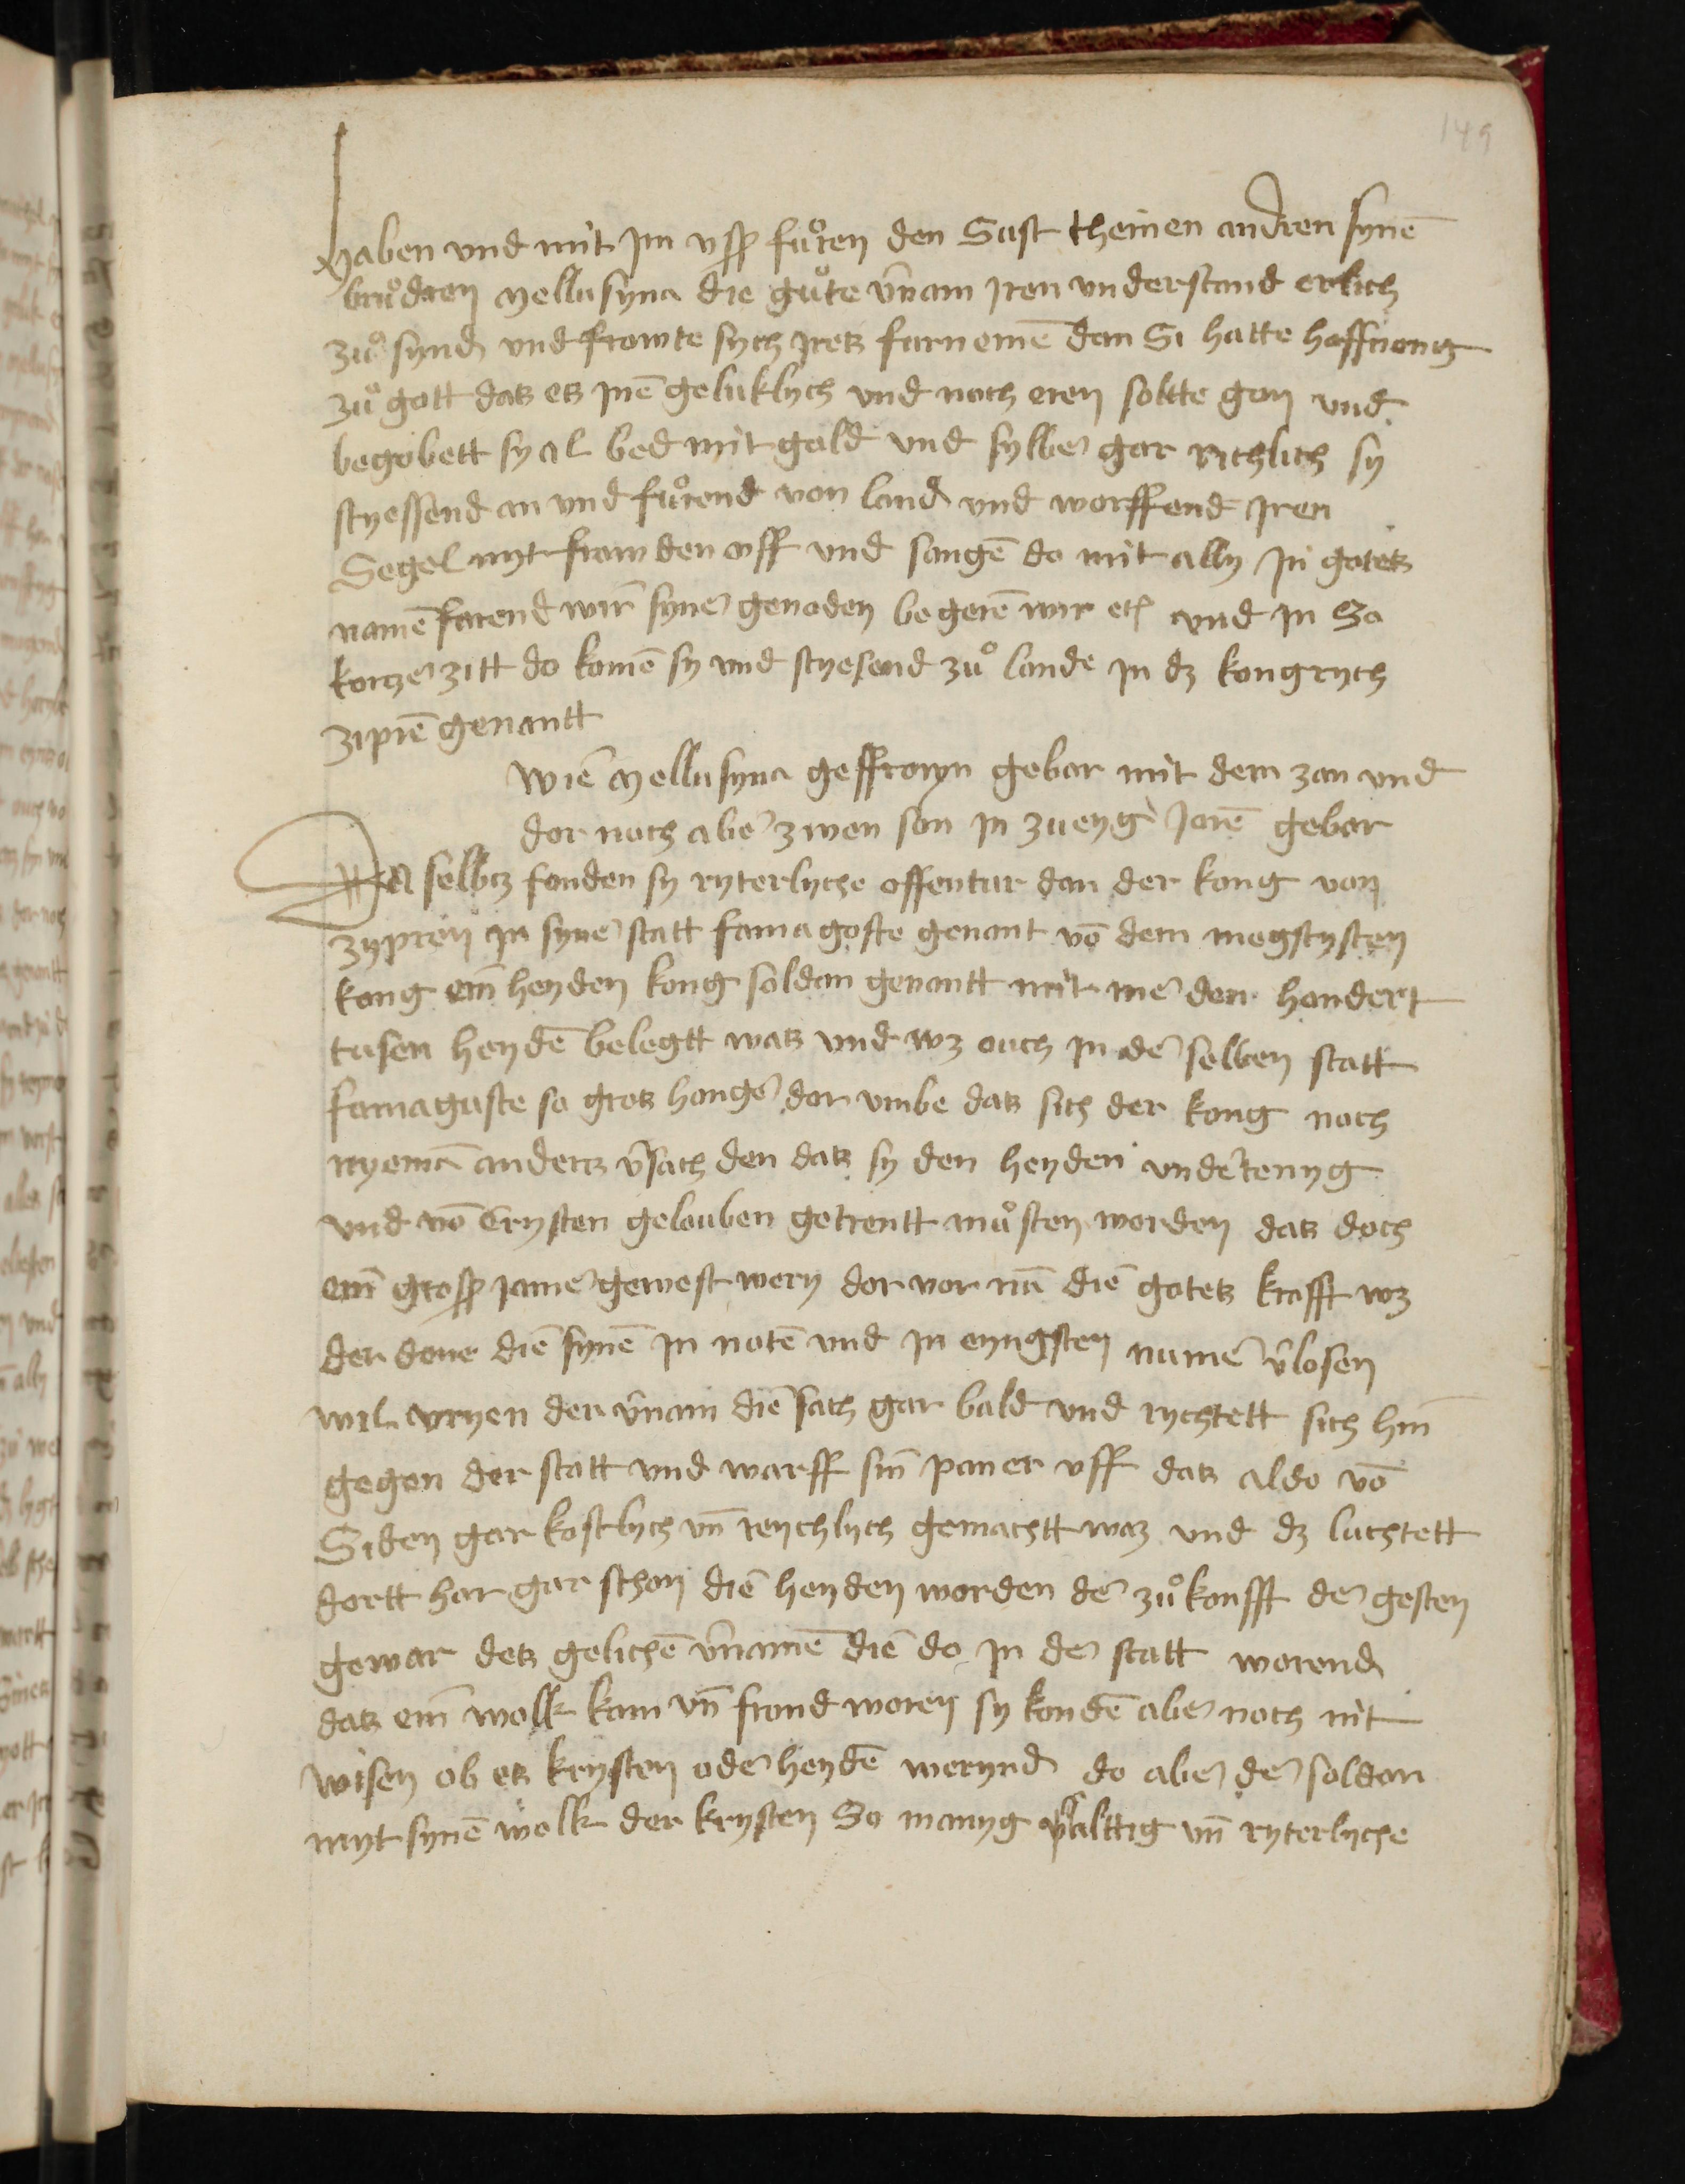 149
haben vnd mit jm vsß fuͦren den Sust theinen andren synē
bruͦdren mellusyna die guͦte v̄nam jren vnderstand erlich
zuͦ synd vnd frowte sych jretz furnemē dan Si hatte hoffnong
zuͦ gott datz etz jnē geluklych vnd noch eren soltte gon vnd
begobett sy al bed mit gold vnd sylber gar richlich sy
styessend an vnd fuͦrend von land vnd worffend jren
Segel myt frowden vff vnd sangē do mit ally jn gotetz
namē farend wir syner genoden begerē wir etc vnd jn So
kortzer zitt do komē sy vnd styesend zuͦ lande jn dz kongrych
ziprē genantt
wie mellusyna geffroyn gebar mit dem zan vnd
dor noch aber zwen son jn zueyg jorē gebar
Da selbtz fonden sy ryterlyche offentur dan der kong von
zypren jn syner statt famagoste genant vō dem megtysten
kong ein heyden kong soldan genantt mit mer den hondert
tusen heydē belegtt watz vnd wz ouch jn der selben statt
famaguste so grotz honger dor vmbe datz sich der kong noch
nyemā andertz v̄sach den datz sy den heyden vndertenyg
vnd vō Crysten gelouben getrentt muͦsten worden datz doch
ein grosß jamer gewest wery dor vor nū die gotetz krafft wz
der done die synē jn notē vnd jn eyngsten numer v̄losen
wil vryen der v̄nam die sach gar bald vnd rychtett sich hin
gegen der statt vnd warff sin paner vff datz aldo vō
Siden gar kostlych vn̄ reychlych gemachtt waz vnd dz luchtett
dortt har gar schon die heyden worden der zuͦkonfft der gesten
gewar detz gelichē v̄namē die do jn der statt worend
datz ein wolk kam vn̄ frond woren sy kondē aber noch nit
wisen ob etz krysten oder heydē werynd do aber der soldan
myt synē wolk der krysten So manyg v̄alttig vn̄ ryterlyche